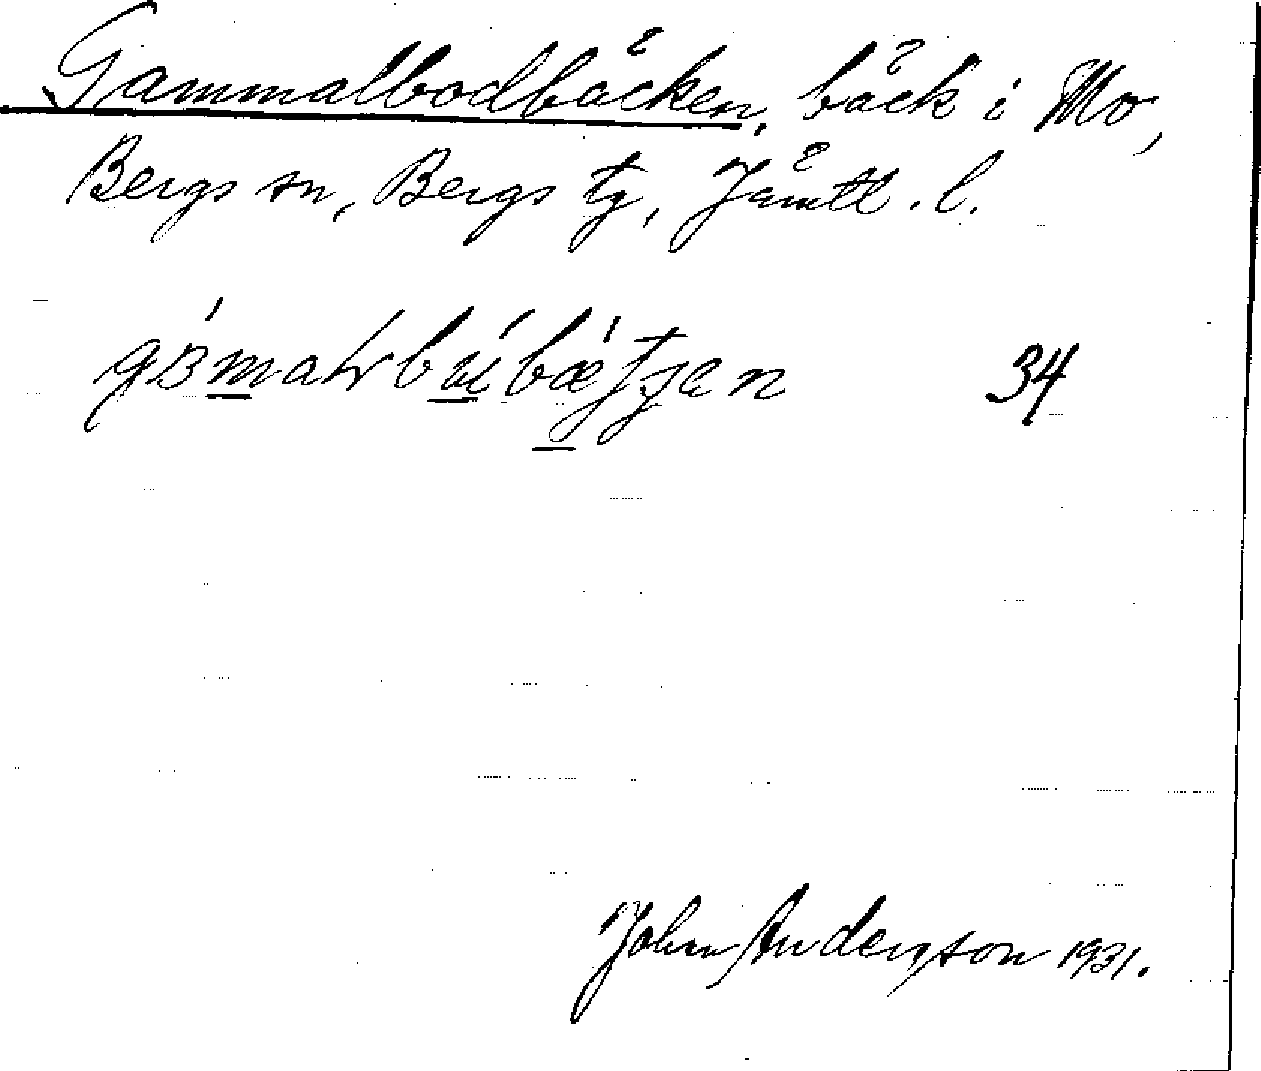 Gammalbodbäcken, bäck i Mo,
Bergs sn, Bergs tg, Jämtl. l.
34
John Anderson 1931.